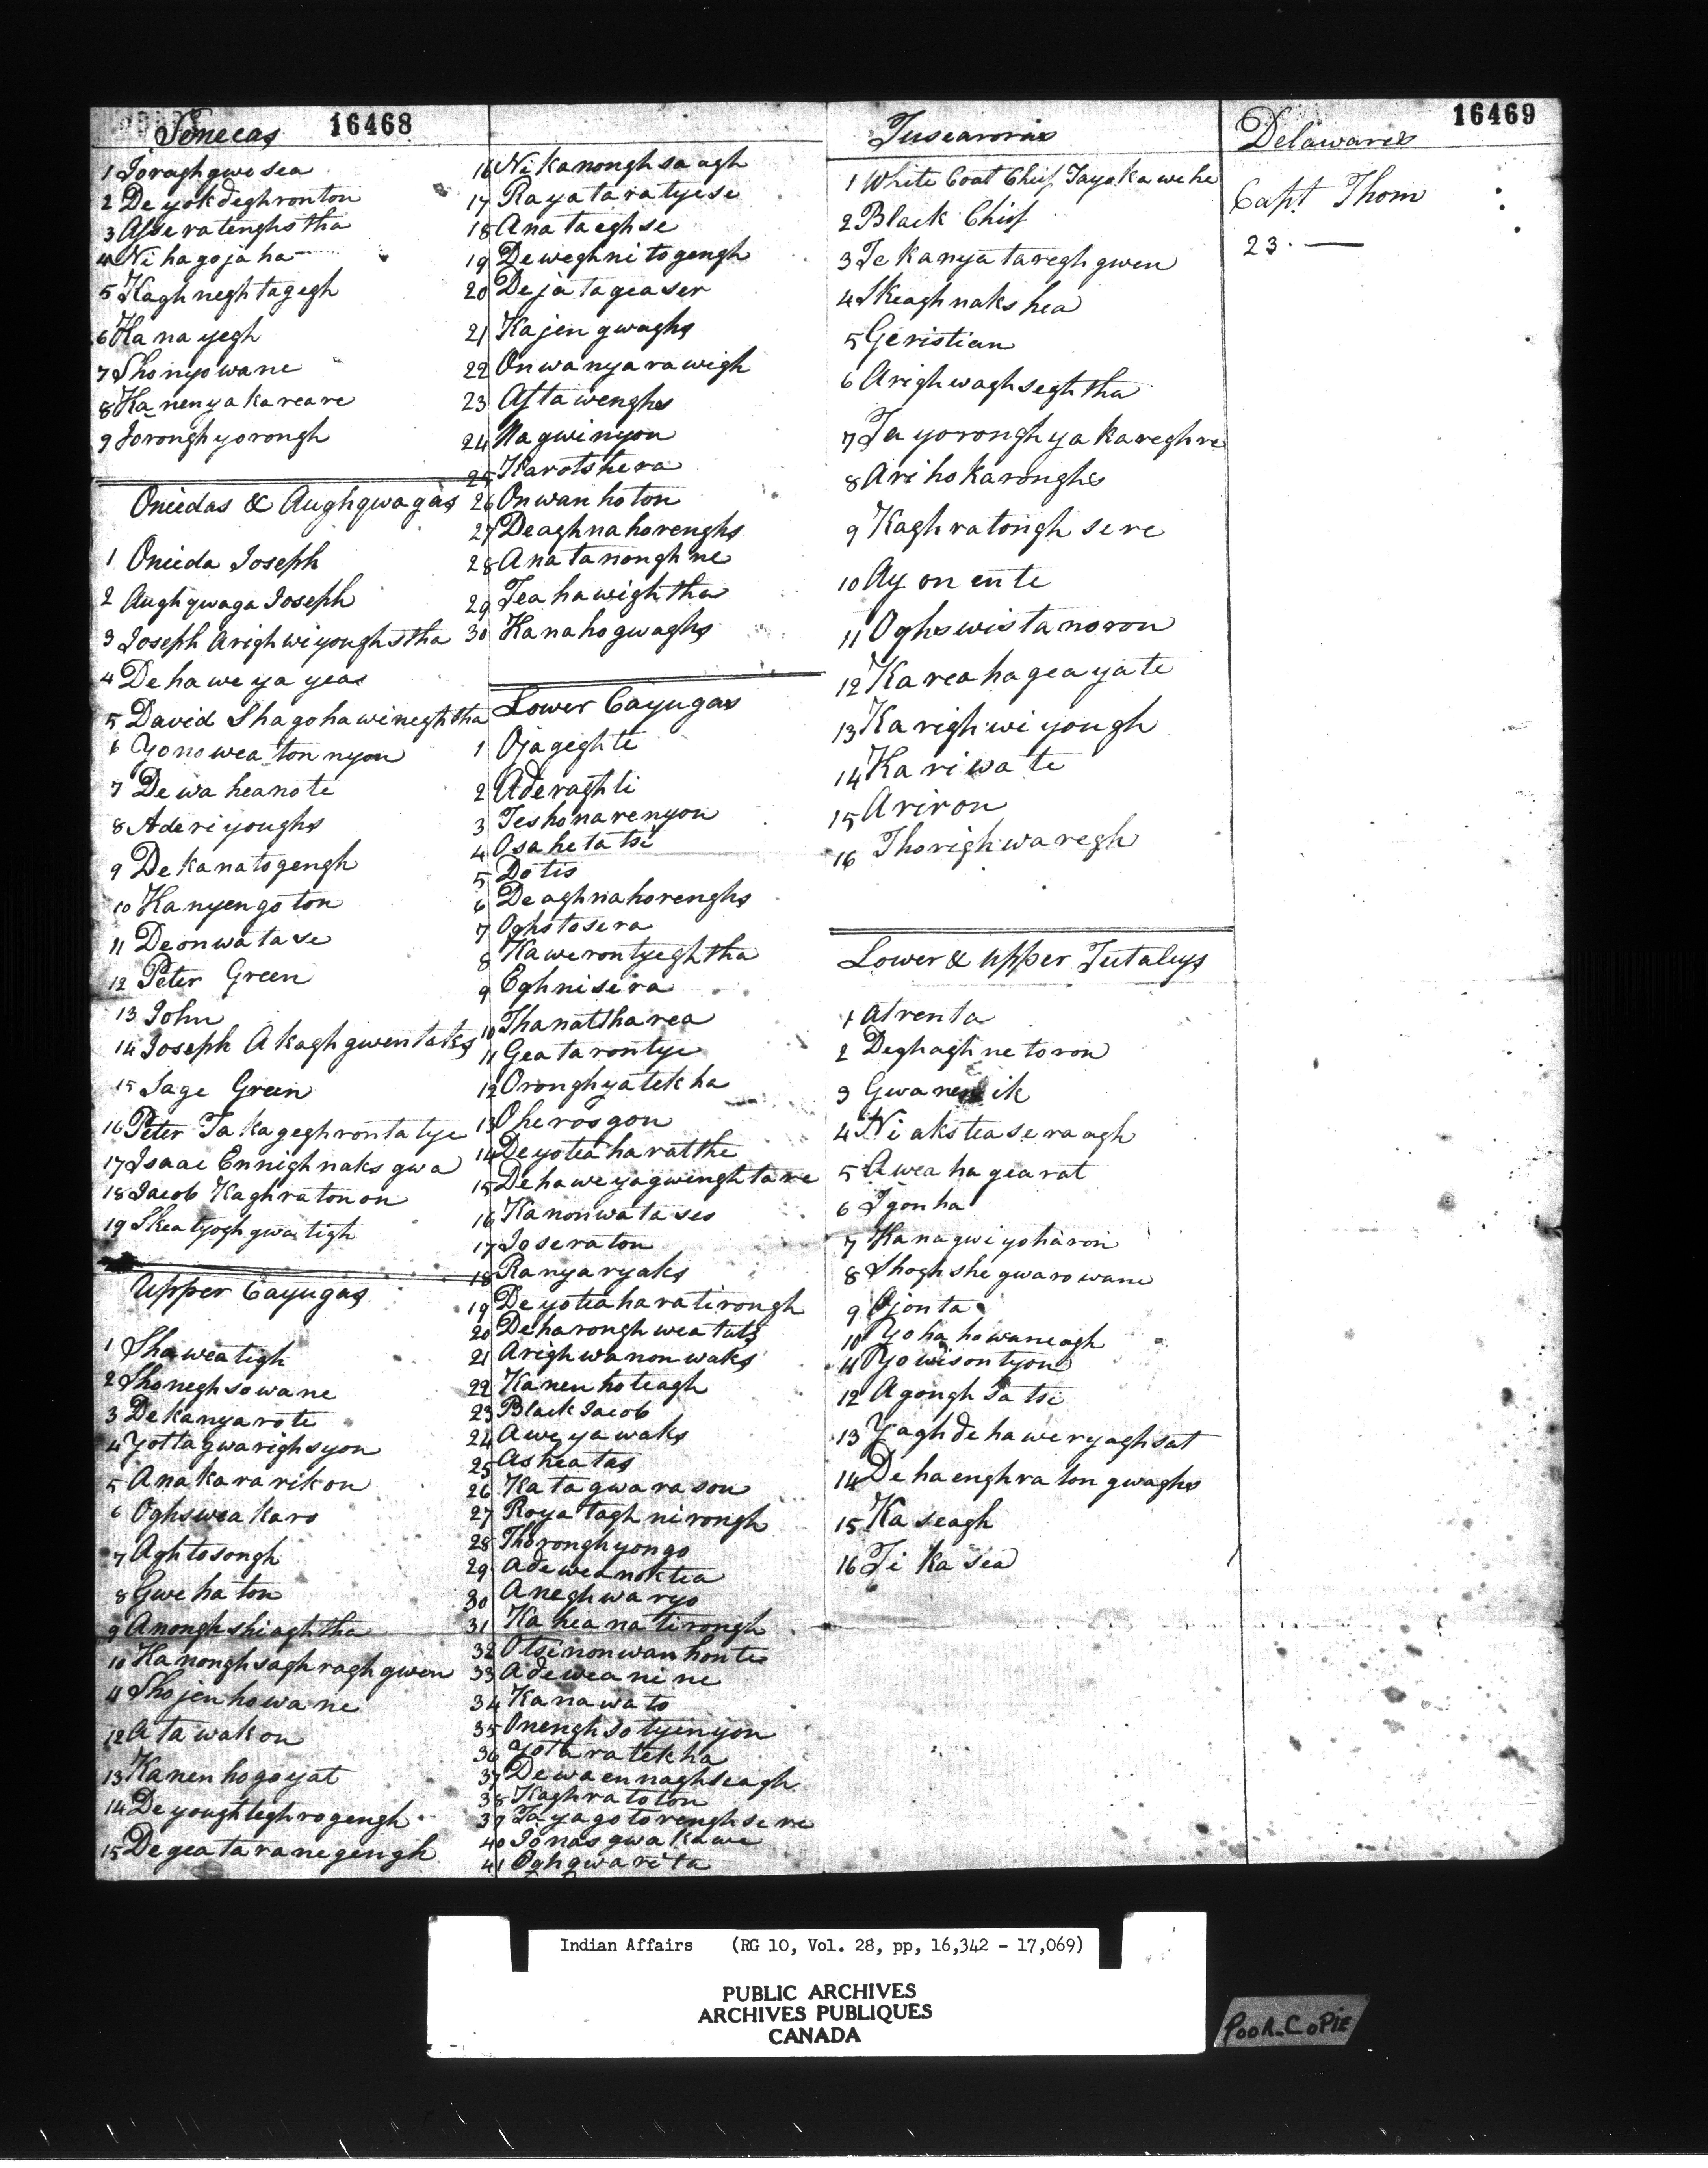 Senecas 16468
1 Joraghgwesea
2 Deyokdeghronton
3 Asseratenghstha
4 Nihagojaha
5 Kaghneghtagegh
6 Kanayegh
7 Shonyowane
8 Kanenyakareare
9 Joronghyorongh
Oneidas & Aughgwagas
1 Oneida Joseph
2 Aughgwaga Joseph
3 Joseph Arighwiyoughstha
4 Dehaweyayeas
5 David Shagohawineghtha
6 Yonoweatonnyon
7 Dewaheanote
8 Aderiyoughs
9 Dekanatogengh
10 Kanyengoton
11 Deonwatase
12 Peter Green
13 John
14 Joseph Akaghgwentaks
15 Sage Green
16 Peter Takageghrontatye
17 Isaac Ennighnaksgwa
18 Jacob Kaghratonon
19 Skeatyoghgwatigh
Upper Cayugas
1 Shaweatigh
2 Shoneghsowane
3 Dekanyarote
4 Yottagwarighsyon
5 Anakararikon
6 Oghsweakaro
7 Aghtosongh
8 Gwehaton
9 Anonghshiaghtha
10 Kanonghsaghraghgwen
11 Shojenhowane
12 Atawakon
13 Kanenhogoyat
14 Deyoughteghrogengh
15 Degeataranegengh
16 Nikanonghsaagh
17 Rayataratyese
18 Anataeghse
19 Deweghnitogengh
20 Dejatageaser
21 Kajengwaghs
22 Onwanyarawigh
23 Astawenghs
24 Nagwinyon
25 Karotshera
26 Onwanhoton
27 Deaghnahorenghs
28 Anatanonghne
29 Teahawightha
30 Kanahogwaghs
Lower Cayugas
1 Ojageghte
2 Aderaghti
3 Teshonarenyon
4 Osahetatsi
5 Dotis
6 Deaghnahorenghs
7 Oghstosera
8 Kawerontyeghtha
9 Eghnisera
10 Thanattharea
11 Geatarontye
12 Oronghyatekha
13 Oherosgon
14 Deyoteaharatthe
15 Dehaweyagwenghtare
16 Kanonwatases
17 Joseraton
18 Ranyaryaks
19 Deyoteaharatirongh
20 Deharonghweatuts
21 Arighwanonwaks
22 Kanenhoteagh
23 Black Jacob
24 Aweyawaks
25 Asheatas
26 Katagwarason
27 Royataghnirongh
28 Thoronghyongo
29 Adeweanoktea
30 Aneghwaryo
31 Kaheanatirongh
32 Otsinonwanhonte
33 Adeweanine
34 Kanawato
35 Onenghsotyenyon
36 Yotaratekha
37 Dewaennaghseagh
38 Kaghratoton
39 Tayagotorenghsere
40 Jonasgwakawe
41 Oghgwarita
Tuscaroras
1 White Coat Chief Tayokawehe
2 Black Chief
3 Tekanyatareghgwen
4 Skeaghnakshea
5 Geristian
6 Arighwaghseghtha
7 Tayoronghyakareghre
8 Arihokaronghs
9 Kaghratonghsere
10 Ayonente
11 Oghswistanoron
12 Kareahageayate
13 Karighwiyough
14 Kariwate
15 Ariron
16 Thorighwaregh
Lower & Upper Tutaleys
1 Atrenta
2 Deghaghnetoron
4 Niaksteaseraagh
5 Aweahagearat
6 Igonha
7 Kanagwiyoharon
8 Shoghshegwarowane
9 Ojonta
10 Yohahowaneagh
11 Yowisontyon
12 Agonghsatse
13 Yaghdehaweryaghsat
14 Dehaenghratongwaghs
15 Kaseagh
16 Tikasea
Delawares 16469
Capt Thom
23. —
Indian Affairs (RG 10, Vol. 28, pp, 16,342 - 17,069)
PUBLIC ARCHIVES
ARCHIVES PUBLIQUES
CANADA
POOR_COPIE